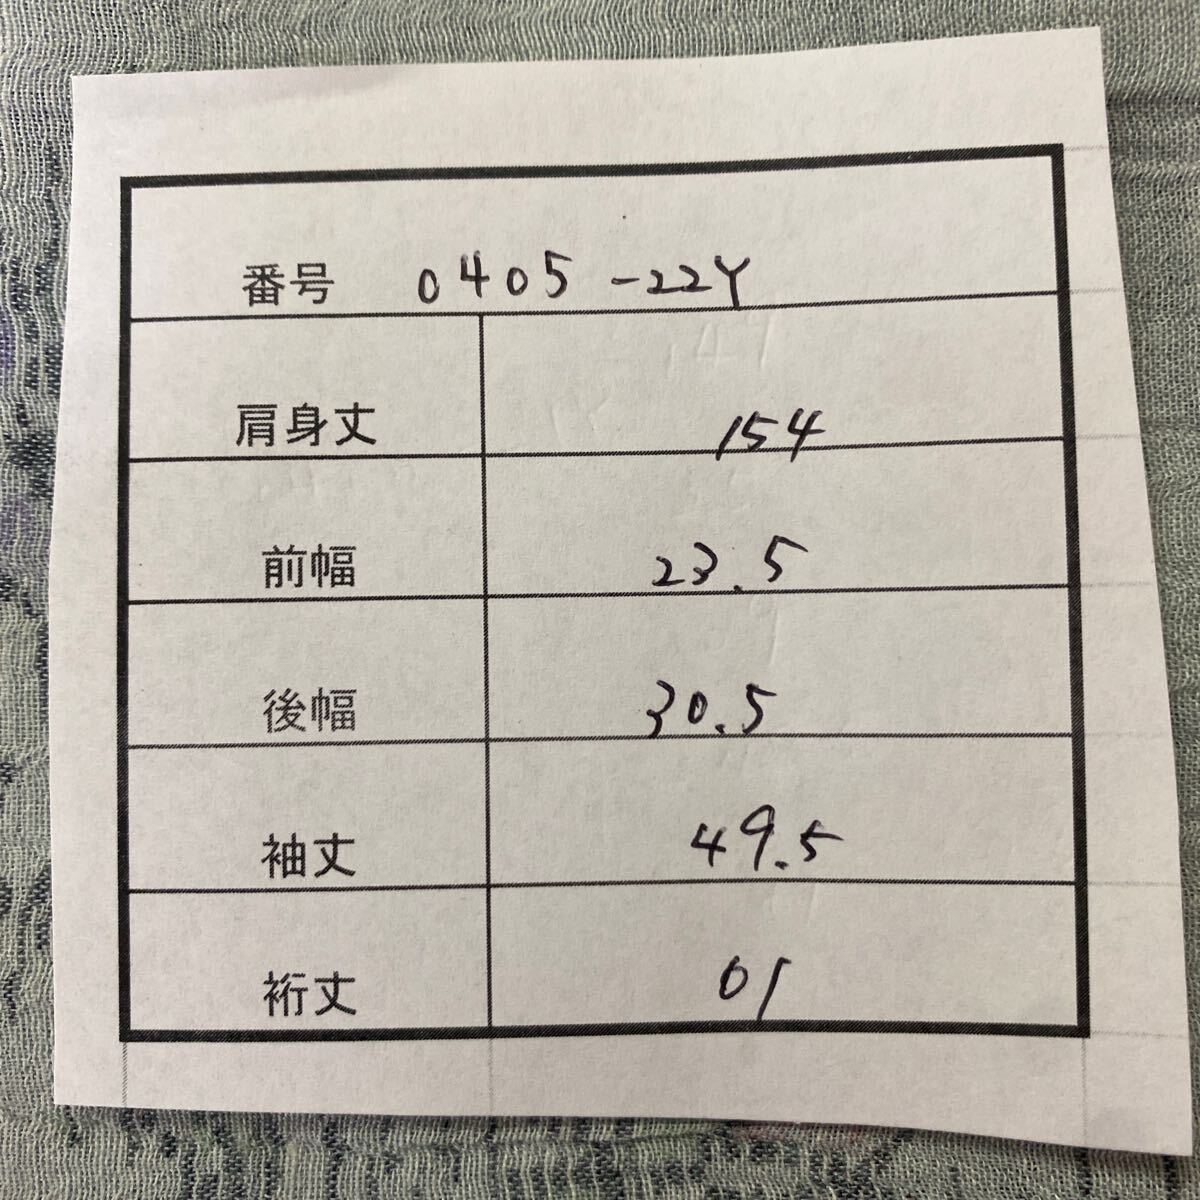 番号 0405-22Y
肩身丈 154
前幅 23.5
後幅 30.5
袖丈 49.5
裄丈